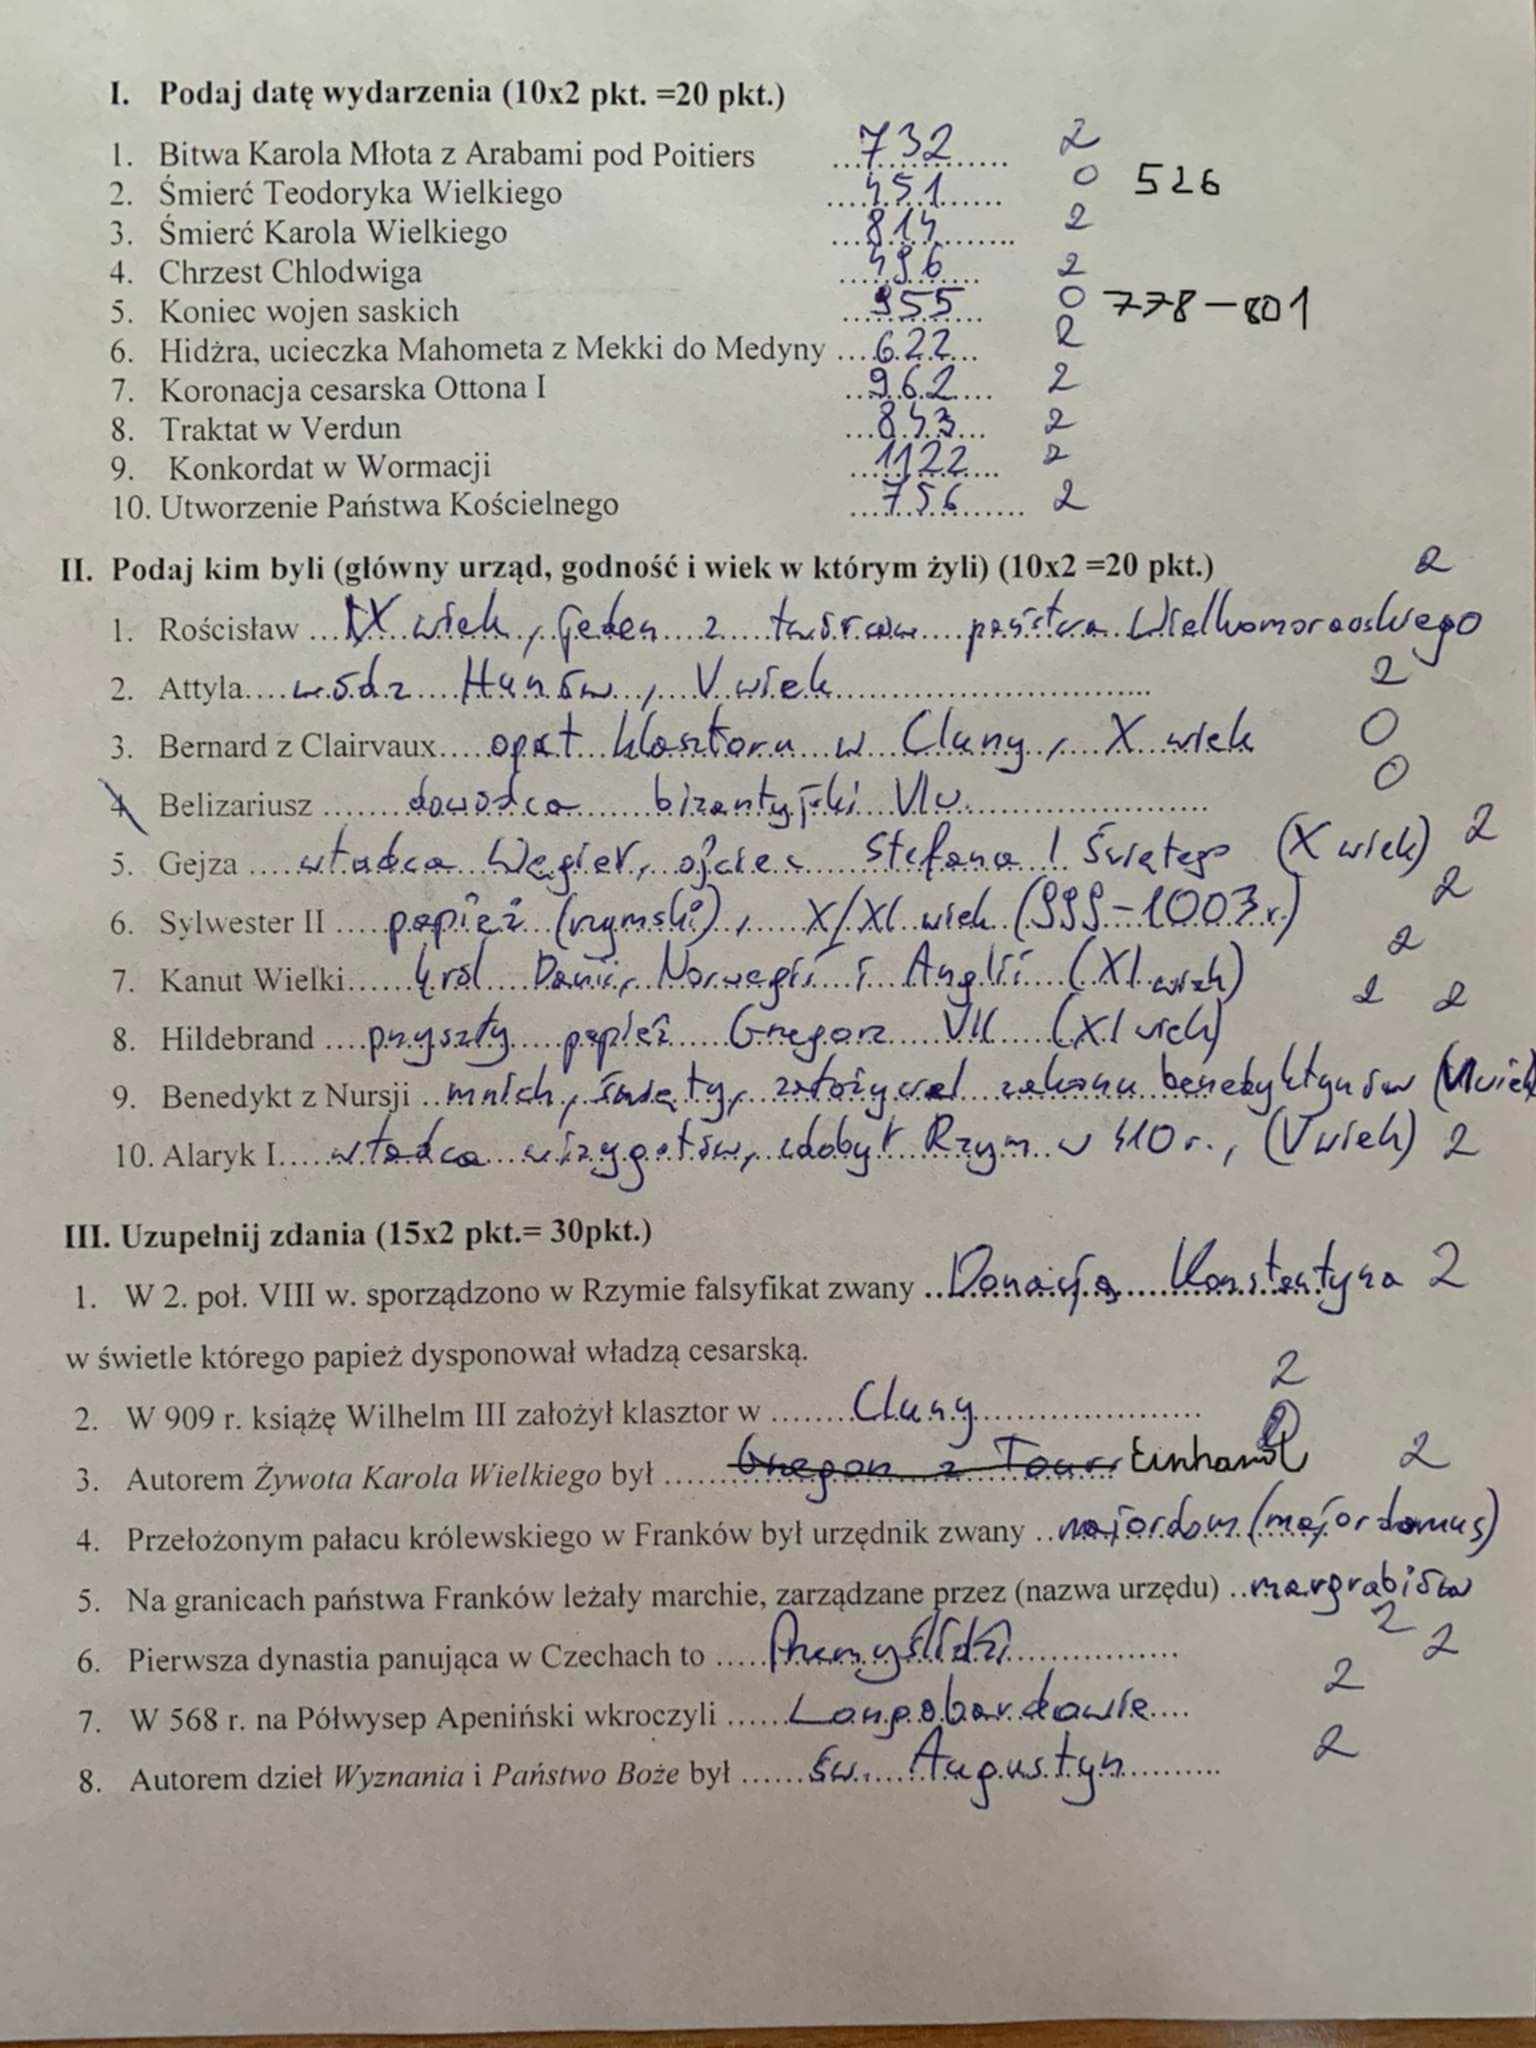 I. Podaj datę wydarzenia (10x2 pkt. =20 pkt.)
1. Bitwa Karola Młota z Arabami pod Poitiers ...732... 2
2. Śmierć Teodoryka Wielkiego ...451... 0 526
3. Śmierć Karola Wielkiego ...814... 2
4. Chrzest Chlodwiga ...496... 2
5. Koniec wojen saskich ...955... 0 778-801
6. Hidżra, ucieczka Mahometa z Mekki do Medyny ...622... 2
7. Koronacja cesarska Ottona I ...962... 2
8. Traktat w Verdun ...843... 2
9. Konkordat w Wormacji ...1122... 2
10. Utworzenie Państwa Kościelnego ...756... 2
II. Podaj kim byli (główny urząd, godność i wiek w którym żyli) (10x2 =20 pkt.) 2
1. Rościsław ...IX wiek, jeden z twórców państwa Wielkomorawskiego
2. Attyla....wódz Hunów, V wiek... 2
3. Bernard z Clairvaux....opat klasztoru w Cluny, X wiek 0
4. Belizariusz ...dowódca bizantyjski VI w... 0
5. Gejza ....władca Węgier, ojciec Stefana I Świętego (X wiek) 2
6. Sylwester II .....papież (rzymski), X/XI wiek (999-1003 r.) 2
7. Kanut Wielki......król Danii, Norwegii i Anglii (XI wiek) 2
8. Hildebrand ....przyszły papież Grzegorz VII (XI wiek) 2 2
9. Benedykt z Nursji ..mnich, święty, założyciel zakonu benedyktynów (VI wiek)
10. Alaryk I.....władca wizygotów, zdobył Rzym w 410 r., (V wiek) 2
III. Uzupełnij zdania (15x2 pkt.= 30pkt.)
1. W 2. poł. VIII w. sporządzono w Rzymie falsyfikat zwany ..Donacją Konstantyna 2
w świetle którego papież dysponował władzą cesarską.
2. W 909 r. książę Wilhelm III założył klasztor w .......Cluny... 2
3. Autorem Żywota Karola Wielkiego był ......Grzegorz z Tours Einhard 2
4. Przełożonym pałacu królewskiego w Franków był urzędnik zwany ..majordom (majordomus)
5. Na granicach państwa Franków leżały marchie, zarządzane przez (nazwa urzędu) ..margrabiów 2
6. Pierwsza dynastia panująca w Czechach to .....Przemyślidzi... 2
7. W 568 r. na Półwysep Apeniński wkroczyli ......Longobardowie.... 2
8. Autorem dzieł Wyznania i Państwo Boże był ......św. Augustyn... 2